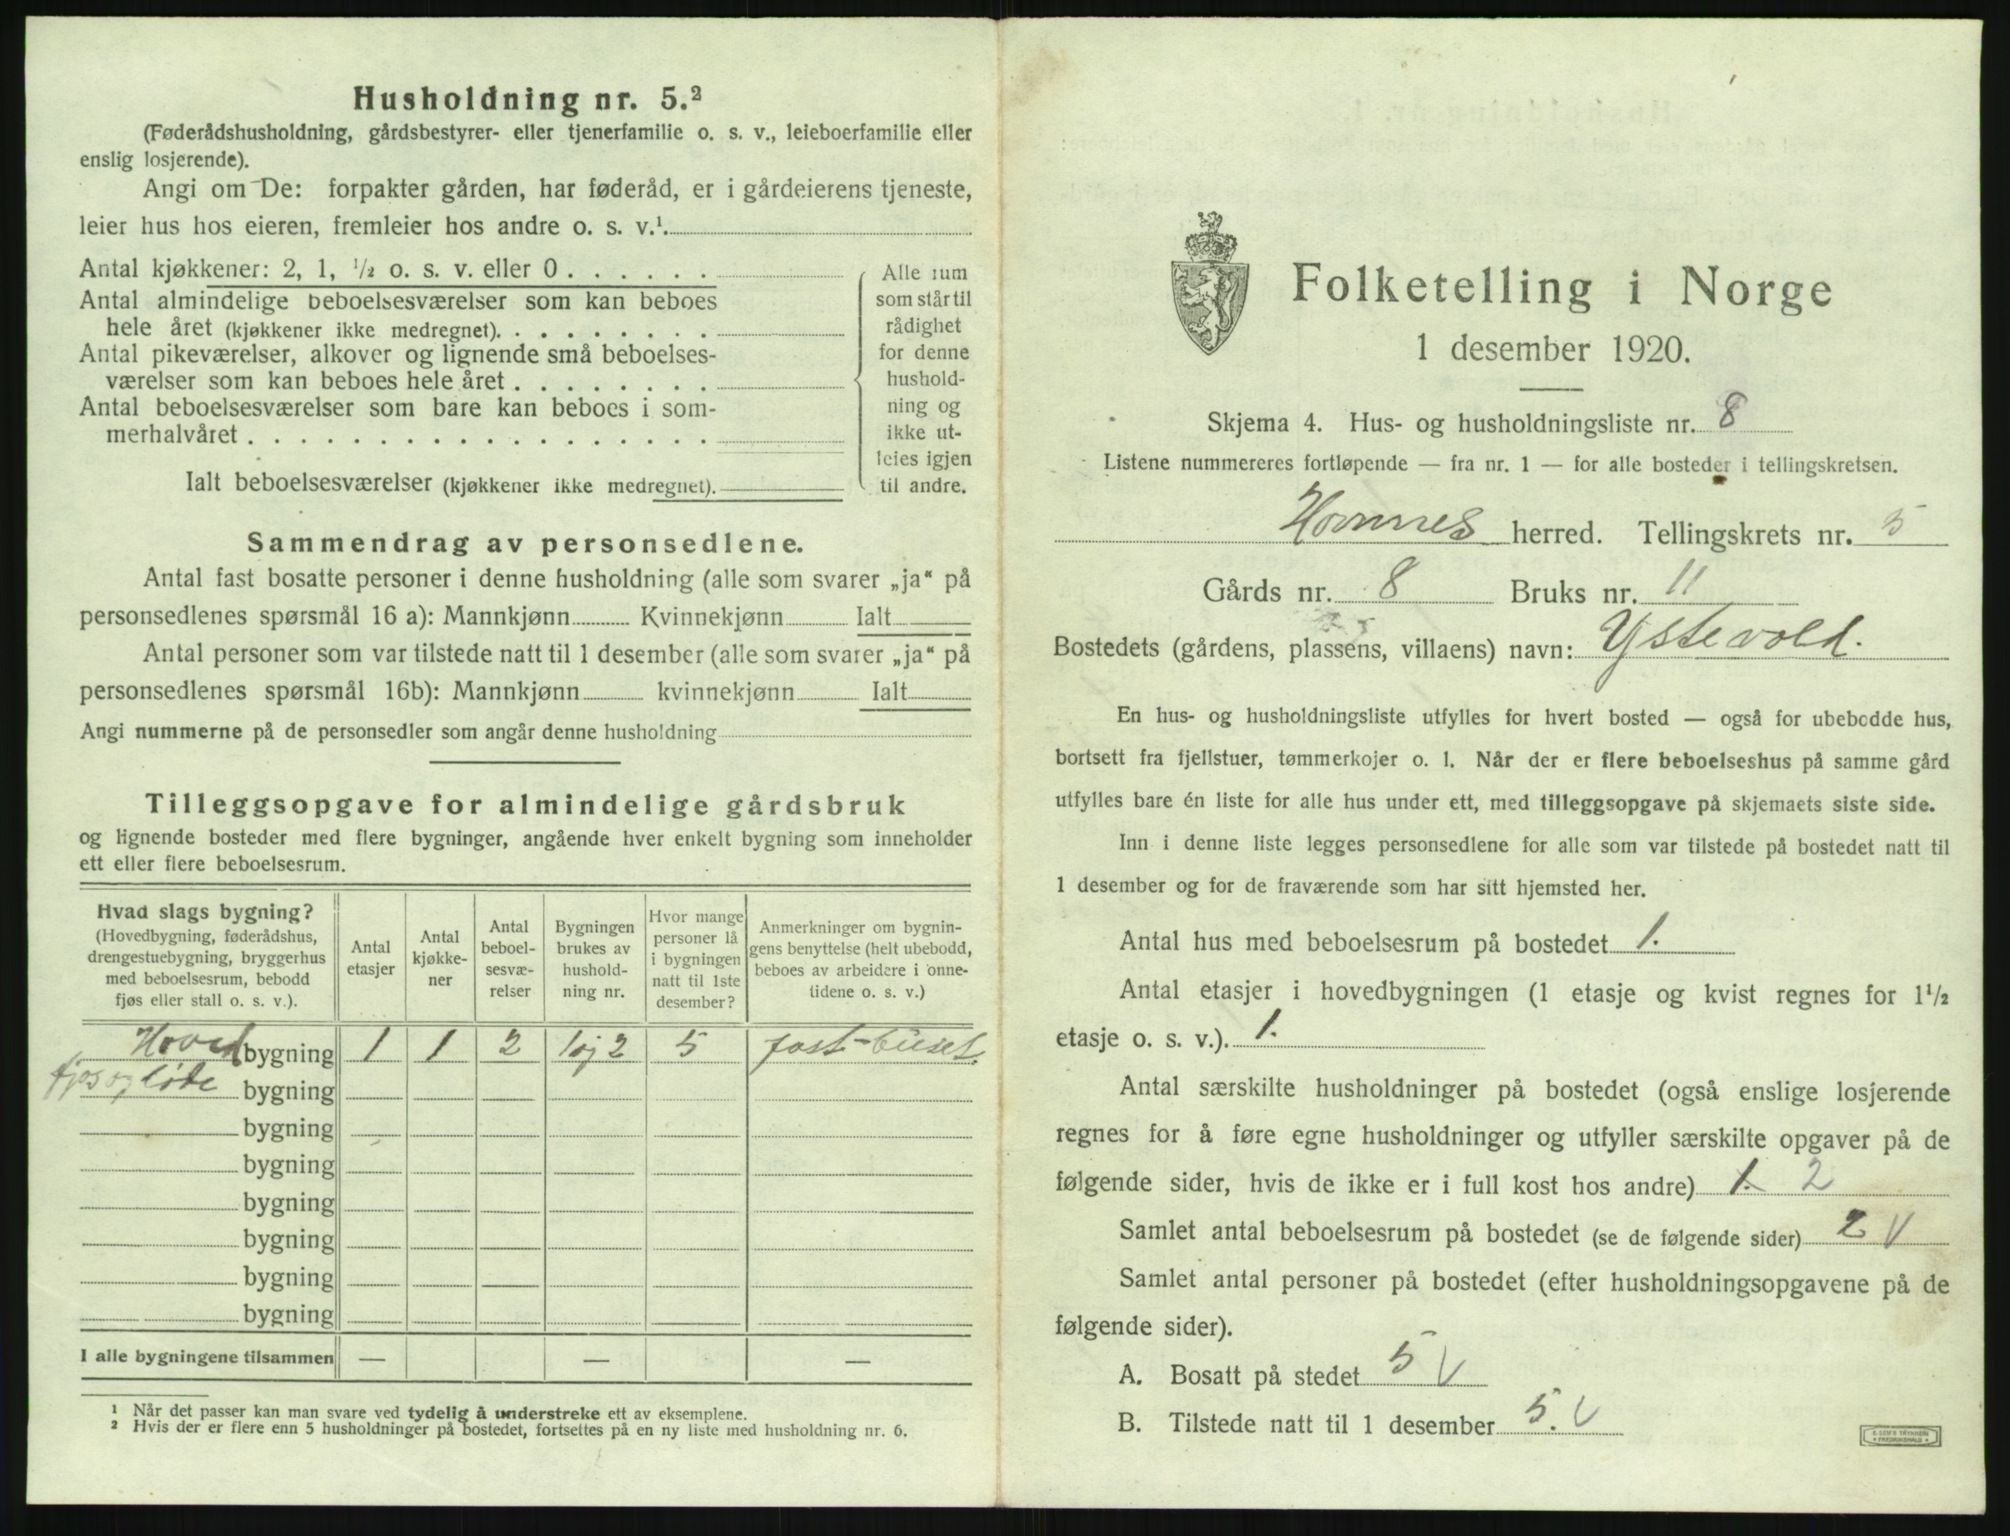 Husholdning nr. 5.²
(Føderådshusholdning, gårdsbestyrer- eller tjenerfamilie o. s. v., leieboerfamilie eller
enslig losjerende).
Angi om De: forpakter gården, har føderåd, er i gårdeierens tjeneste,
leier hus hos eieren, fremleier hos andre o. s. v.¹.
Antal kjøkkener: 2, 1, ½ o. s. v. eller 0 . . . . . .
Antal almindelige beboelsesværelser som kan beboes
hele året (kjøkkener ikke medregnet). . . . . . . . .
Antal pikeværelser, alkover og lignende små beboelses-
værelser som kan beboes hele året . . . . . . . .
Antal beboelsesværelser som bare kan beboes i som-
merhalvåret . . . . . . . . . . . . . . . . . .
Ialt beboelsesværelser (kjøkkener ikke medregnet).
Alle rum
som står til
rådighet
for denne
hushold-
ning og
ikke ut-
leies igjen
til andre.
Sammendrag av personsedlene.
Antal fast bosatte personer i denne husholdning (alle som svarer „ja“ på
personsedlenes spørsmål 16 a): Mannkjønn Kvinnekjønn Ialt
Antal personer som var tilstede natt til 1 desember (alle som svarer „ja“ på
personsedlenes spørsmål 16b): Mannkjønn kvinnekjønn Ialt
Angi nummerne på de personsedler som angår denne husholdning
Tilleggsopgave for almindelige gårdsbruk
og lignende bosteder med flere bygninger, angående hver enkelt bygning som inneholder
ett eller flere beboelsesrum.
Hvad slags bygning?
(Hovedbygning, føderådshus,
drengestuebygning, bryggerhus
med beboelsesrum, bebodd
fjøs eller stall o. s. v.).
Antal
etasjer
Antal
kjøkke-
ner
Antal
beboel-
sesvæ-
relser
Bygningen
brukes av
hushold-
ning nr.
Hvor mange
personer lå
i bygningen
natt til 1ste
desember?
Anmerkninger om bygnin-
gens benyttelse (helt ubebodd,
beboes av arbeidere i onne-
tidene o. s. v.)
Hoved bygning 1 1 2 1 og 2 5 fast buset.
fjos og løde bygning
bygning
bygning
bygning
bygning
bygning
bygning
I alle bygningene tilsammen — — —
¹ Når det passer kan man svare ved tydelig å understreke ett av eksemplene.
² Hvis der er flere enn 5 husholdninger på bostedet, fortsettes på en ny liste med husholdning nr. 6.
Folketelling i Norge
1 desember 1920.
Skjema 4. Hus- og husholdningsliste nr. 8
Listene nummereres fortløpende — fra nr. 1 — for alle bosteder i tellingskretsen.
Hornnes herred. Tellingskrets nr. 5
Gårds nr. 8 Bruks nr. 11
Bostedets (gårdens, plassens, villaens) navn: Ystevold.
En hus- og husholdningsliste utfylles for hvert bosted — også for ubebodde hus,
bortsett fra fjellstuer, tømmerkojer o. l. Når der er flere beboelseshus på samme gård
utfylles bare én liste for alle hus under ett, med tilleggsopgave på skjemaets siste side.
Inn i denne liste legges personsedlene for alle som var tilstede på bostedet natt til
1 desember og for de fraværende som har sitt hjemsted her.
Antal hus med beboelsesrum på bostedet 1.
Antal etasjer i hovedbygningen (1 etasje og kvist regnes for 1½
etasje o. s. v.). 1.
Antal særskilte husholdninger på bostedet (også enslige losjerende
regnes for å føre egne husholdninger og utfyller særskilte opgaver på de
følgende sider, hvis de ikke er i full kost hos andre) 1. 2
Samlet antal beboelsesrum på bostedet (se de følgende sider) 2 V
Samlet antal personer på bostedet (efter husholdningsopgavene på de
følgende sider).
A. Bosatt på stedet 5 V
B. Tilstede natt til 1 desember 5. V